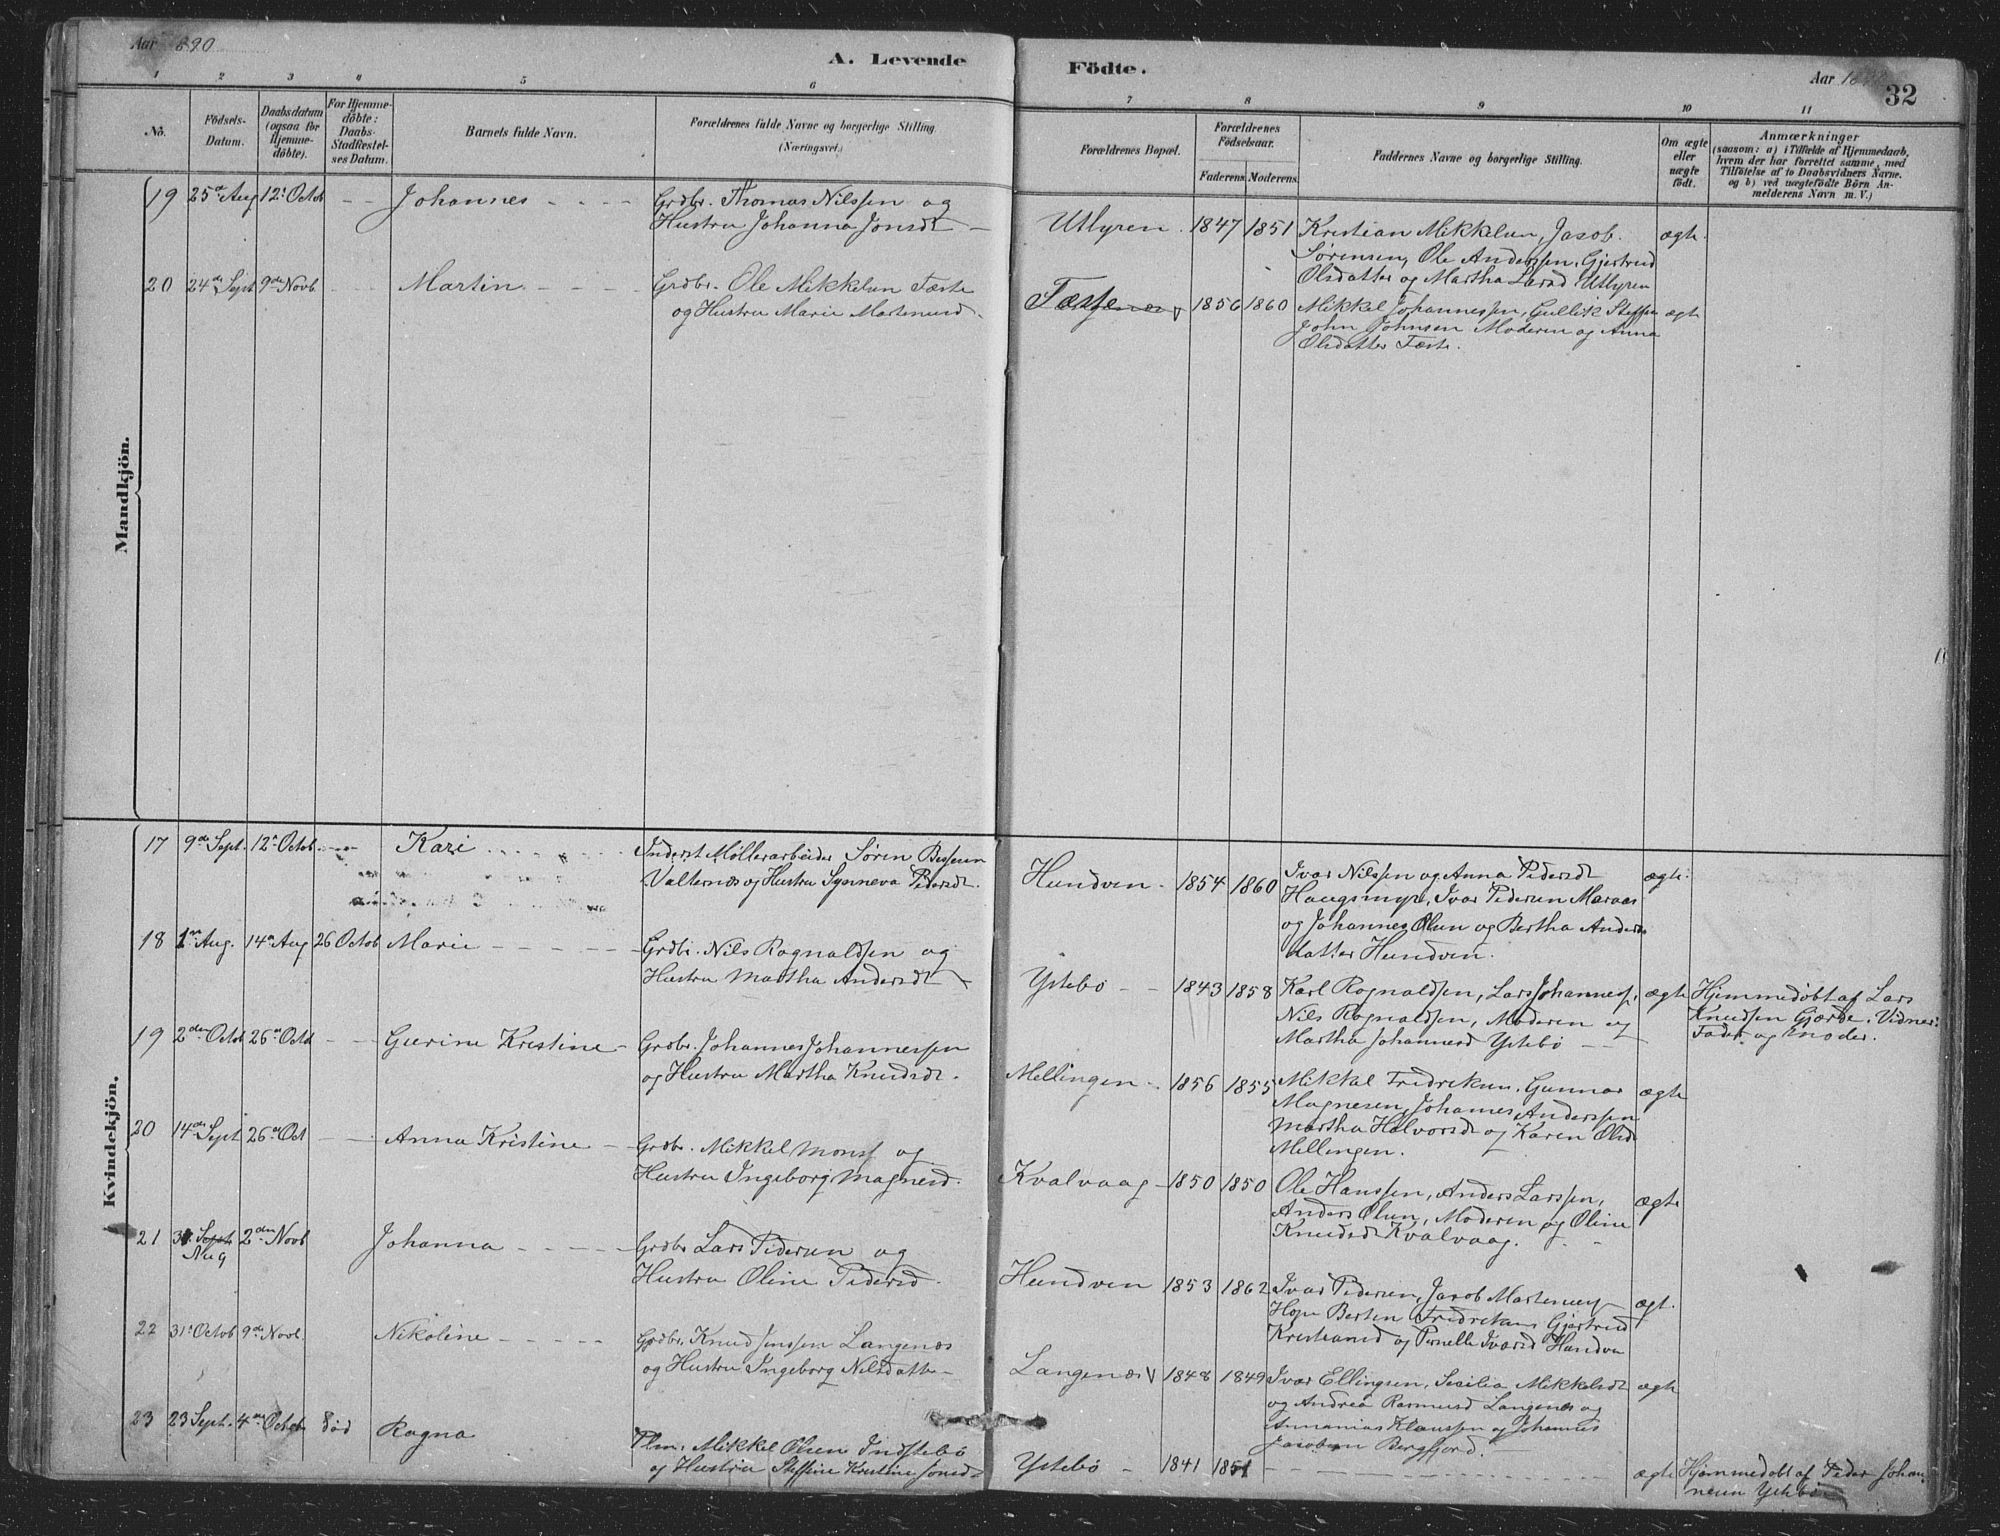 Aar 1890
A. Levende Födte.
Aar 18
32
1 2 3 4 5 6 7 8 9 10 11
No.
Födsels-Datum.
Daabsdatum (ogsaa for Hjemme-döbte).
For Hjemme-döbte: Daabs-Stadfæstel-ses Datum.
Barnets fulde Navn.
Forældrenes fulde Navne og borgerlige Stilling. (Næringsvei.)
Forældrenes Bopæl.
Forældrenes Födselsaar.
Faderens. Moderens.
Faddernes Navne og borgerlige Stilling.
Om ægte eller uægte födt.
Anmærkninger
(saasom: a) i Tilfælde af Hjemmedaab,
hvem der har forrettet samme, med
Tilföielse af to Daabsvidners Navne.
og b) ved uægtefödte Börn An-
melderens Navn m. V.)
Mandkjön.
19 25de Aug 12te Octob - - Johannes - - - - Grdbr. Thomas Nilssen og
Hustru Johanna Jonsdt -
Utlyren. 1847 1851 Kristian Mikkelsen, Jacob
Sørensen, Ole Anderssen, Gjertrud
Olsdatter og Martha Larsd Utlyren
ægte.
20 24de Sept 9de Novb. - - Martin - - - - Grdbr. Ole Mikkelsen Tæste
og Hustru Marie Martensd.
Tæste 1856 1860 Mikkel Johannessen, Gullik Steffen
John Johnsen Moderen og Anna
Olsdatter Tæste.
ægte
Kvindekjön.
17 9de Sept. 12te Octob. - - Kari - - - - Inderst Møllerarbeider Søren
Valternæs og Hustru Synneva Pedersdt.
Hundven. 1854 1860 Ivar Nilssen og Anna Pedersdt
Haugsmyr, Ivar Pedersen Maraas
og Johannes Olsen og Bertha Anders
datter Hundven.
ægte.
18 1ste Aug. 14de Aug 26 Octob Marie - - - - Grdbr. Nils Rognaldsen og
Hustru Martha Andersdt
Ystebø - - 1843 1858 Karl Rognaldsen, Lars Johanness.
Nils Rognaldsen, Moderen og
Martha Johannesd Ystebø - -
ægte Hjemmedøbt af Lars
Knudsen Gjerde. Vidner:
Fader og Moder.
19 2den Octob 26de Octb - - Gurine Kristine - Grdbr. Johannes Johannessen
og Hustru Martha Knudsdt.
Mellingen - 1856 1855 Mikkel Fredriksen, Gunnar
Magnesen, Johannes Anderssen
Martha Halvorsd og Karen Olsd
Mellingen.
ægte
20 14de Sept 26de Oct - - Anna Kristine - Grdbr. Mikkel Monss og
Hustru Ingeborg Magnesd.
Kvalvaag - 1850 1850 Ole Hanssen, Anders Larssen,
Anders Olsen, Moderen og Oline
Knudsdt Kvalvaag.
ægte
21 31. Sept Aug 2den Novb Johanna - - - - Grdbr Lars Pedersen og
Hustru Oline Pedersd.
Hundven 1853 1862 Ivar Pedersen, Jacob Martenss
Hope Berten Fredriksen Gjertrud
Kristiansd og Pernelle Ivarsd Hundven
ægt.
22 31te Octob 9de Novb. Nikoline - - - - Grdbr. Knud Jenssen Langenæs
og Hustru Ingeborg Nilsdatter
Langenæs 1848 1849 Ivar Ellingsen, Secilia Mikkelsdt
og Andrea Rasmusd Langenæs og
Annanias Klaussen og Johannes
Jacobsen Bergfjord.
ægte
23 23 Sept. 4de Octob død Ragna Plm. Mikkel Olsen Indstebø
og Hustru Steffine Kristine Jonsd
Ystebø - 1841 1851 - - - - ægte Hjemmedøbt af Peder Johan
nesen Ystebø